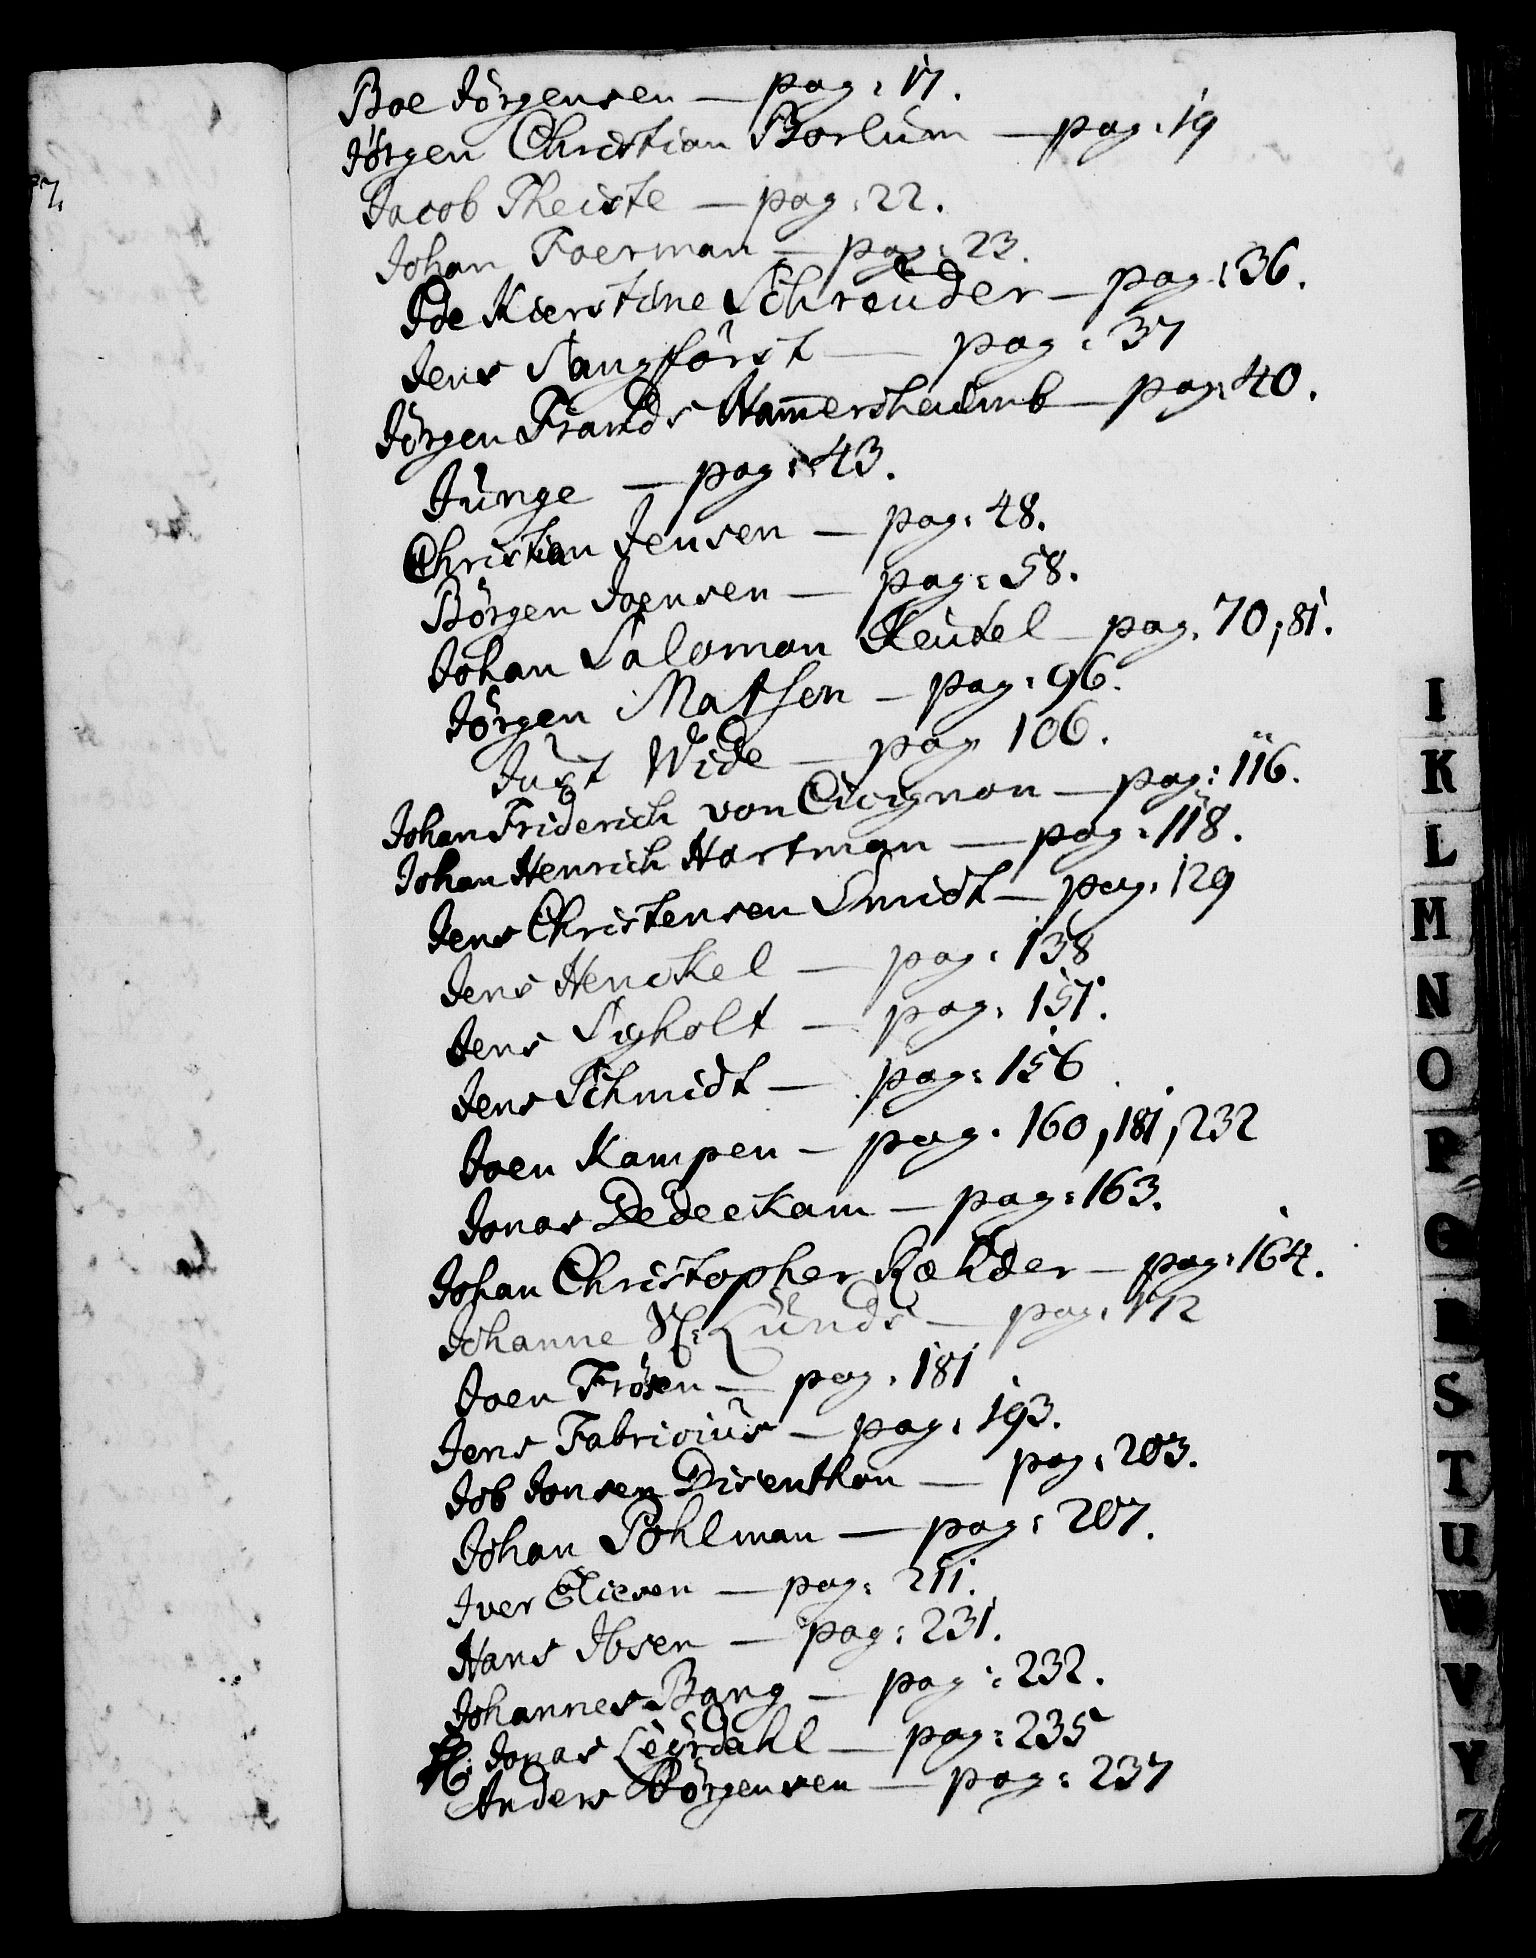 Boe Jörgensen — pag: 17.
Jörgen Christian Borlum — pag: 19
Jacob Theiste — pag: 22.
Johan Foerman — pag: 23.
Ide Kierstine Schreuder — pag: 36.
Jens Langförst — pag: 37
Jörgen Frands Hammershaimb — pag: 40.
Junge — pag: 43.
Christian Jensen — pag: 48.
Börgen Joensen — pag: 58.
Johan Salomon Keusel — pag. 70, 81.
Jörgen Matsen — pag: 96.
Just Wide — pag 106.
Johan Friderich von Cicignon — pag: 116.
Johan Henrich Hartman — pag: 118.
Jens Christensen Smidt — pag: 129
Jens Henckel — pag: 138
Jens Sygholt — pag: 151.
Jens Schmidt — pag: 156
Joen Kampen — pag. 160, 181, 232
Jonas Dedeckam — pag: 163.
Johan Christopher — pag: 164.
Johanne Lunds — pag: 172
Joen Frösen — pag: 181
Jens Fabricius — pag: 193.
Job Jonsen Disenthon — pag: 203.
Johan Pohlman — pag: 207.
Iver Eliesen — pag: 211.
Hans Ibsen — pag: 231.
Johannes Bang — pag: 232.
Jonas Leyrdahl — pag: 235
Anders Börgensen — pag: 237
I
K
L
M
N
O
P
Q
R
S
T
U
W
V
Y
Z